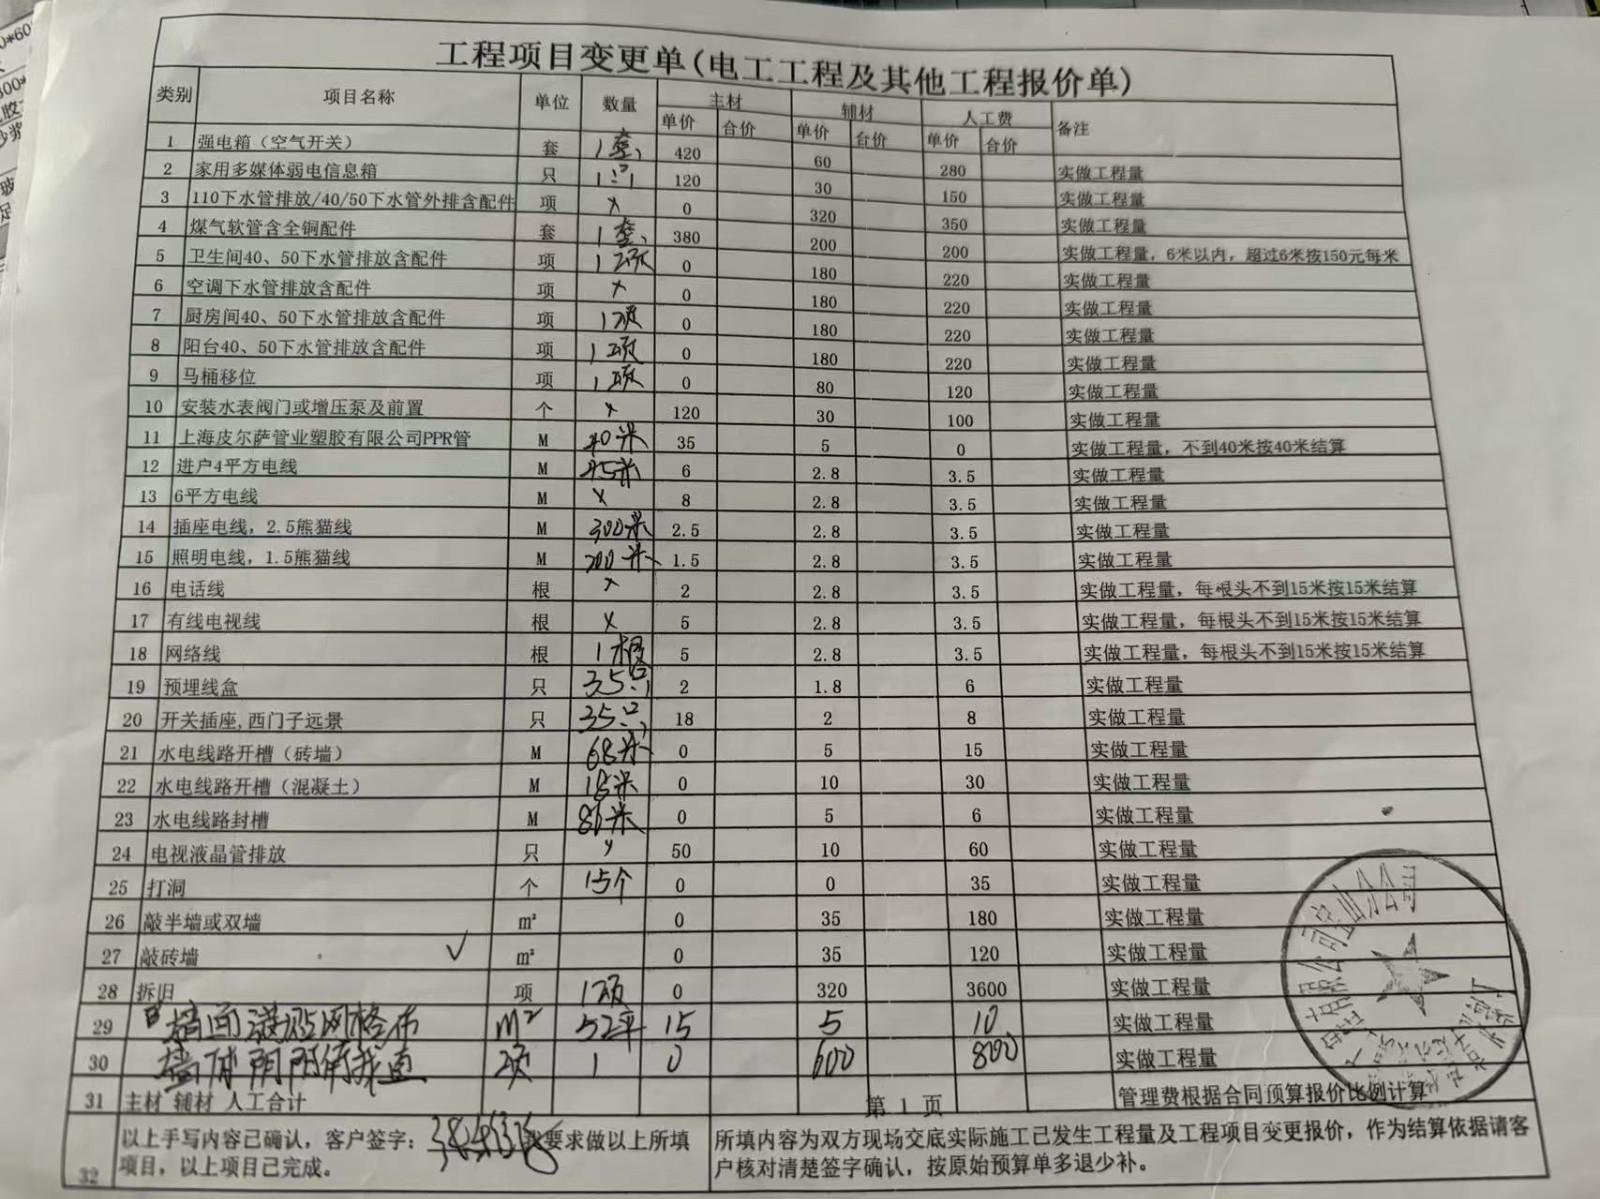 工程项目变更单(电工工程及其他工程报价单)
类别 项目名称 单位 数量 主材 辅材 人工费 备注
单价 合价 单价 合价 单价 合价
1 强电箱（空气开关） 套 1套 420 60 280 实做工程量
2 家用多媒体弱电信息箱 只 1只 120 30 150 实做工程量
3 110下水管排放/40/50下水管外排含配件 项 x 0 320 350 实做工程量
4 煤气软管含全铜配件 套 1套 380 200 200 实做工程量，6米以内，超过6米按150元每米
5 卫生间40、50下水管排放含配件 项 1项 0 180 220 实做工程量
6 空调下水管排放含配件 项 x 0 180 220 实做工程量
7 厨房间40、50下水管排放含配件 项 1项 0 180 220 实做工程量
8 阳台40、50下水管排放含配件 项 1项 0 180 220 实做工程量
9 马桶移位 项 1项 0 80 120 实做工程量
10 安装水表阀门或增压泵及前置 个 x 120 30 100 实做工程量
11 上海皮尔萨管业塑胶有限公司PPR管 M 40米 35 5 0 实做工程量，不到40米按40米结算
12 进户4平方电线 M 45米 6 2.8 3.5 实做工程量
13 6平方电线 M x 8 2.8 3.5 实做工程量
14 插座电线，2.5熊猫线 M 300米 2.5 2.8 3.5 实做工程量
15 照明电线，1.5熊猫线 M 200米 1.5 2.8 3.5 实做工程量
16 电话线 根 x 2 2.8 3.5 实做工程量，每根头不到15米按15米结算
17 有线电视线 根 x 5 2.8 3.5 实做工程量，每根头不到15米按15米结算
18 网络线 根 1根 5 2.8 3.5 实做工程量，每根头不到15米按15米结算
19 预埋线盒 只 35只 2 1.8 6 实做工程量
20 开关插座,西门子远景 只 35只 18 2 8 实做工程量
21 水电线路开槽（砖墙） M 68米 0 5 15 实做工程量
22 水电线路开槽（混凝土） M 18米 0 10 30 实做工程量
23 水电线路封槽 M 86米 0 5 6 实做工程量
24 电视液晶管排放 只 x 50 10 60 实做工程量
25 打洞 个 15个 0 0 35 实做工程量
26 敲半墙或双墙 m² 0 35 180 实做工程量
27 敲砖墙 ✓ m² 0 35 120 实做工程量
28 拆旧 项 1项 0 320 3600 实做工程量
29 墙面满贴网格布 m² 52平 15 5 10 实做工程量
30 墙体阴阳角找直 项 1 0 600 800 实做工程量
31 主材 辅材 人工合计 第 1 页 管理费根据合同预算报价比例计算
32 以上手写内容已确认，客户签字： 我要求做以上所填
项目，以上项目已完成。
所填内容为双方现场交底实际施工已发生工程量及工程项目变更报价，作为结算依据请客
户核对清楚签字确认，按原始预算单多退少补。
宝山分公司